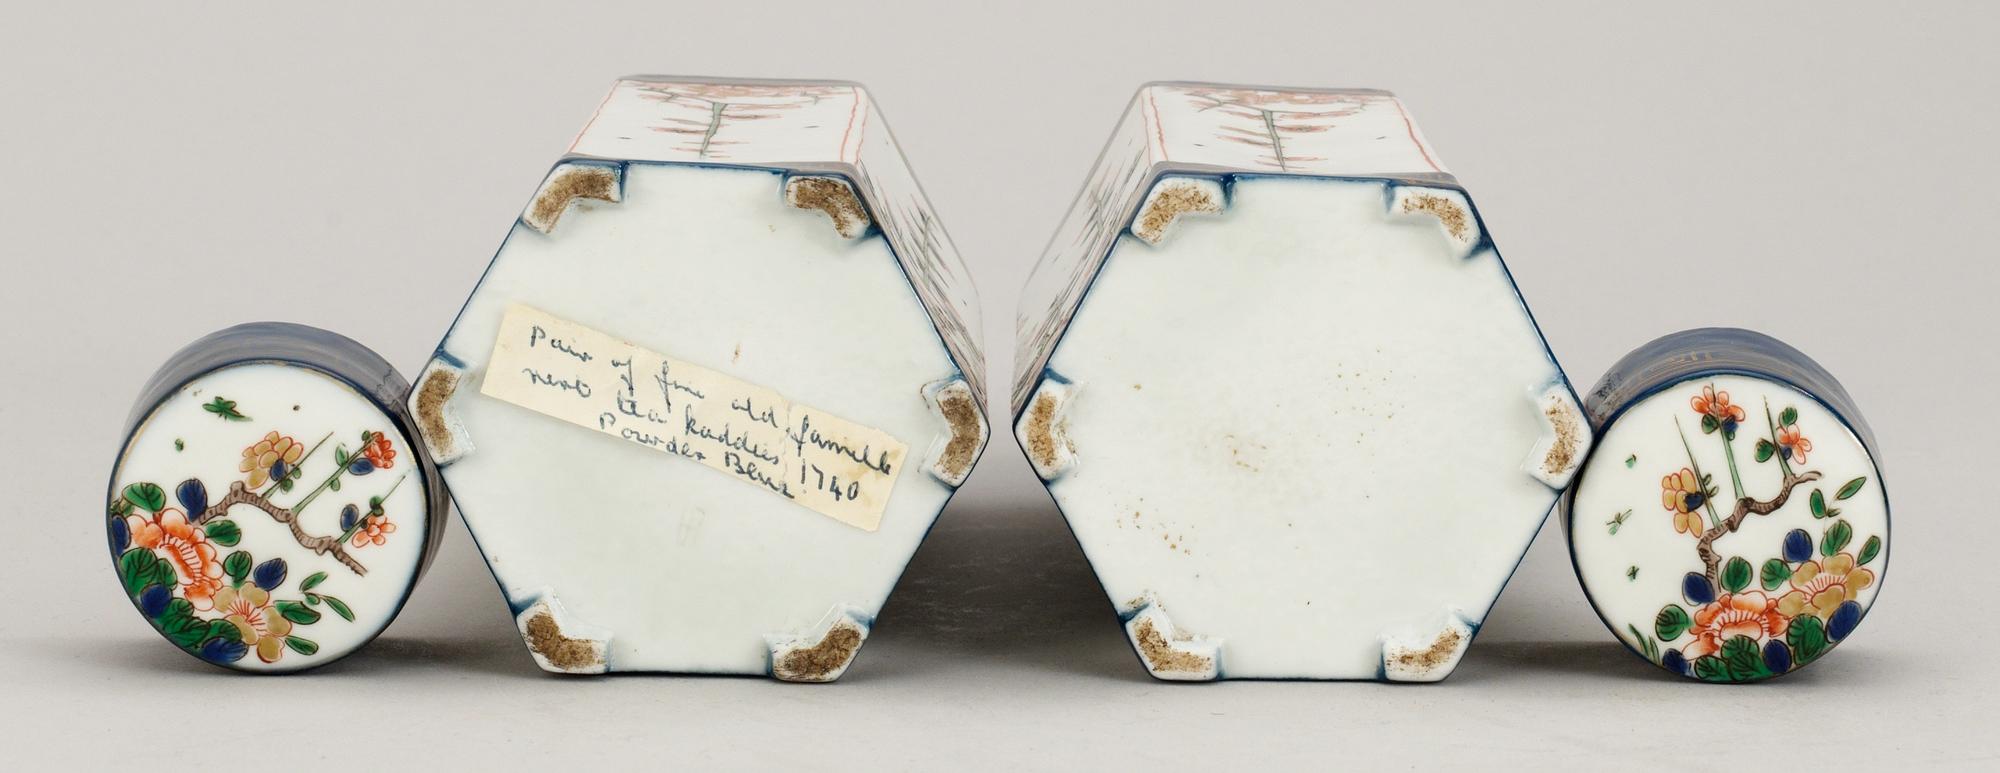 Pair of fine old famille
verte tea kaddies 1740
Powder Blue